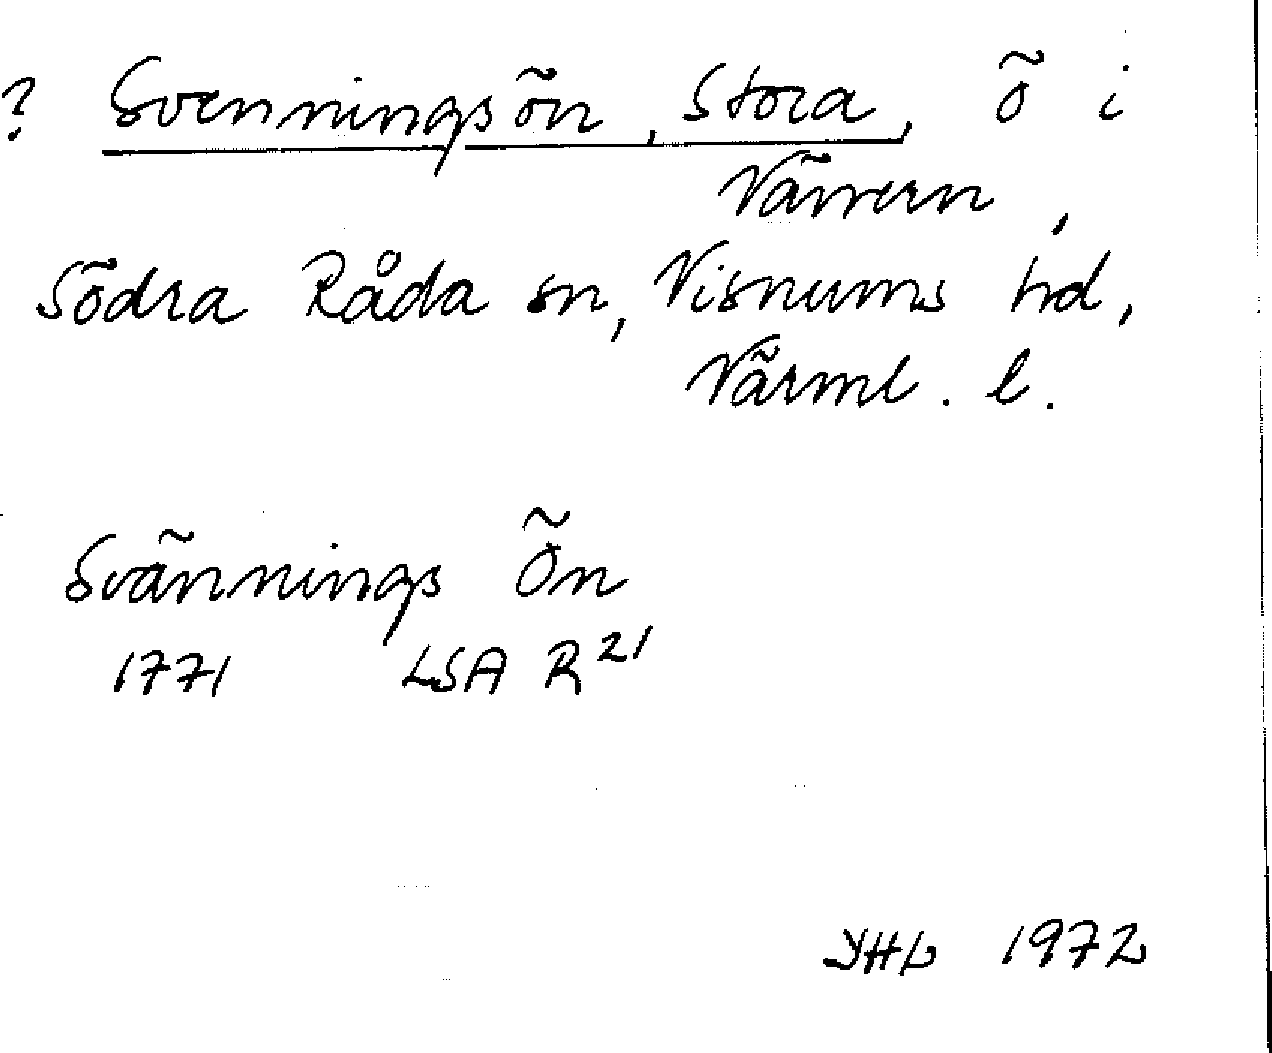 ? Svenningsön, Stora, ö i
Vänern,
Södra Råda sn, Visnums hd,
Värml. l.
Svännings Ön
1771 LSA R21
YHL 1972